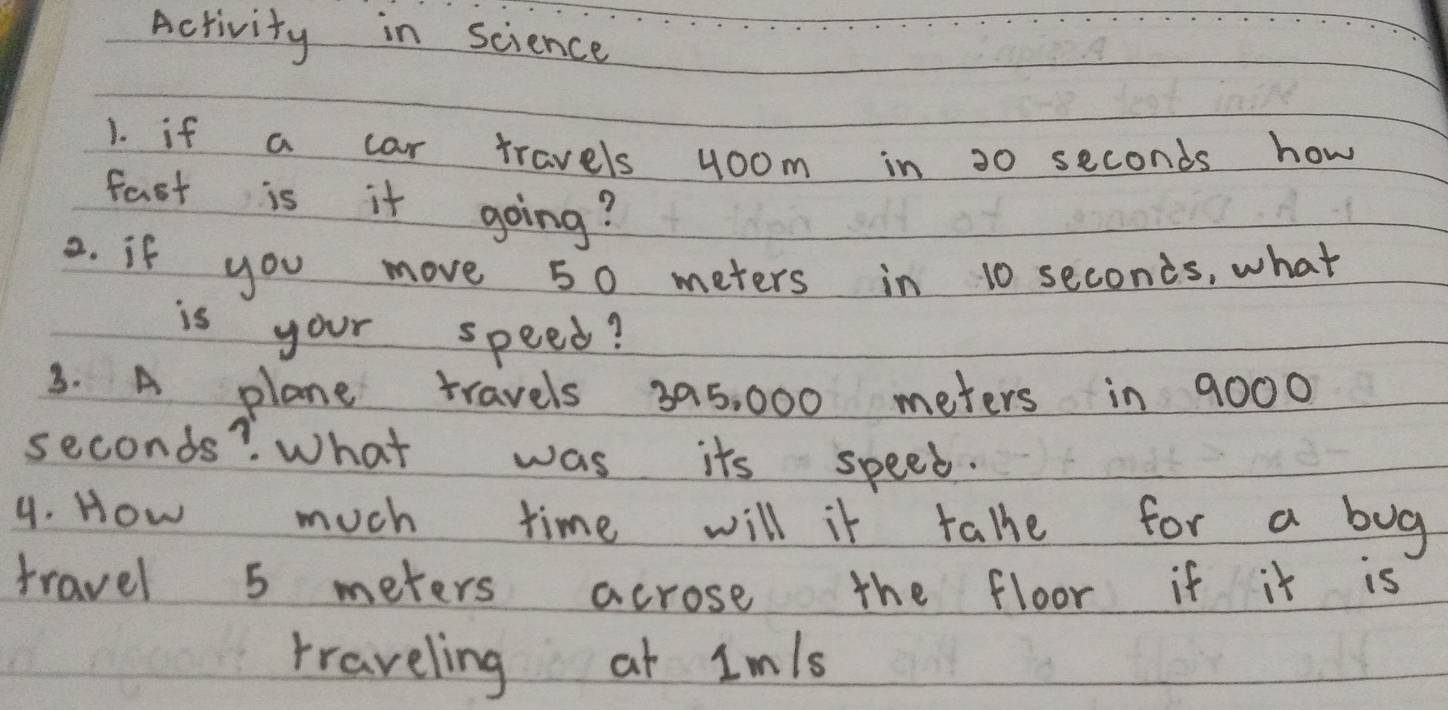 Activity in Science
1. if a car travels 400m in 20 seconds how
fast is it going?
2. if you move 50 meters in 10 seconds, what
is your speed?
3. A plane travels 395,000 meters in 9000
seconds? What was its speed.
4. How much time will it take for a bug
travel 5 meters acrose the floor if it is
traveling at 1m/s